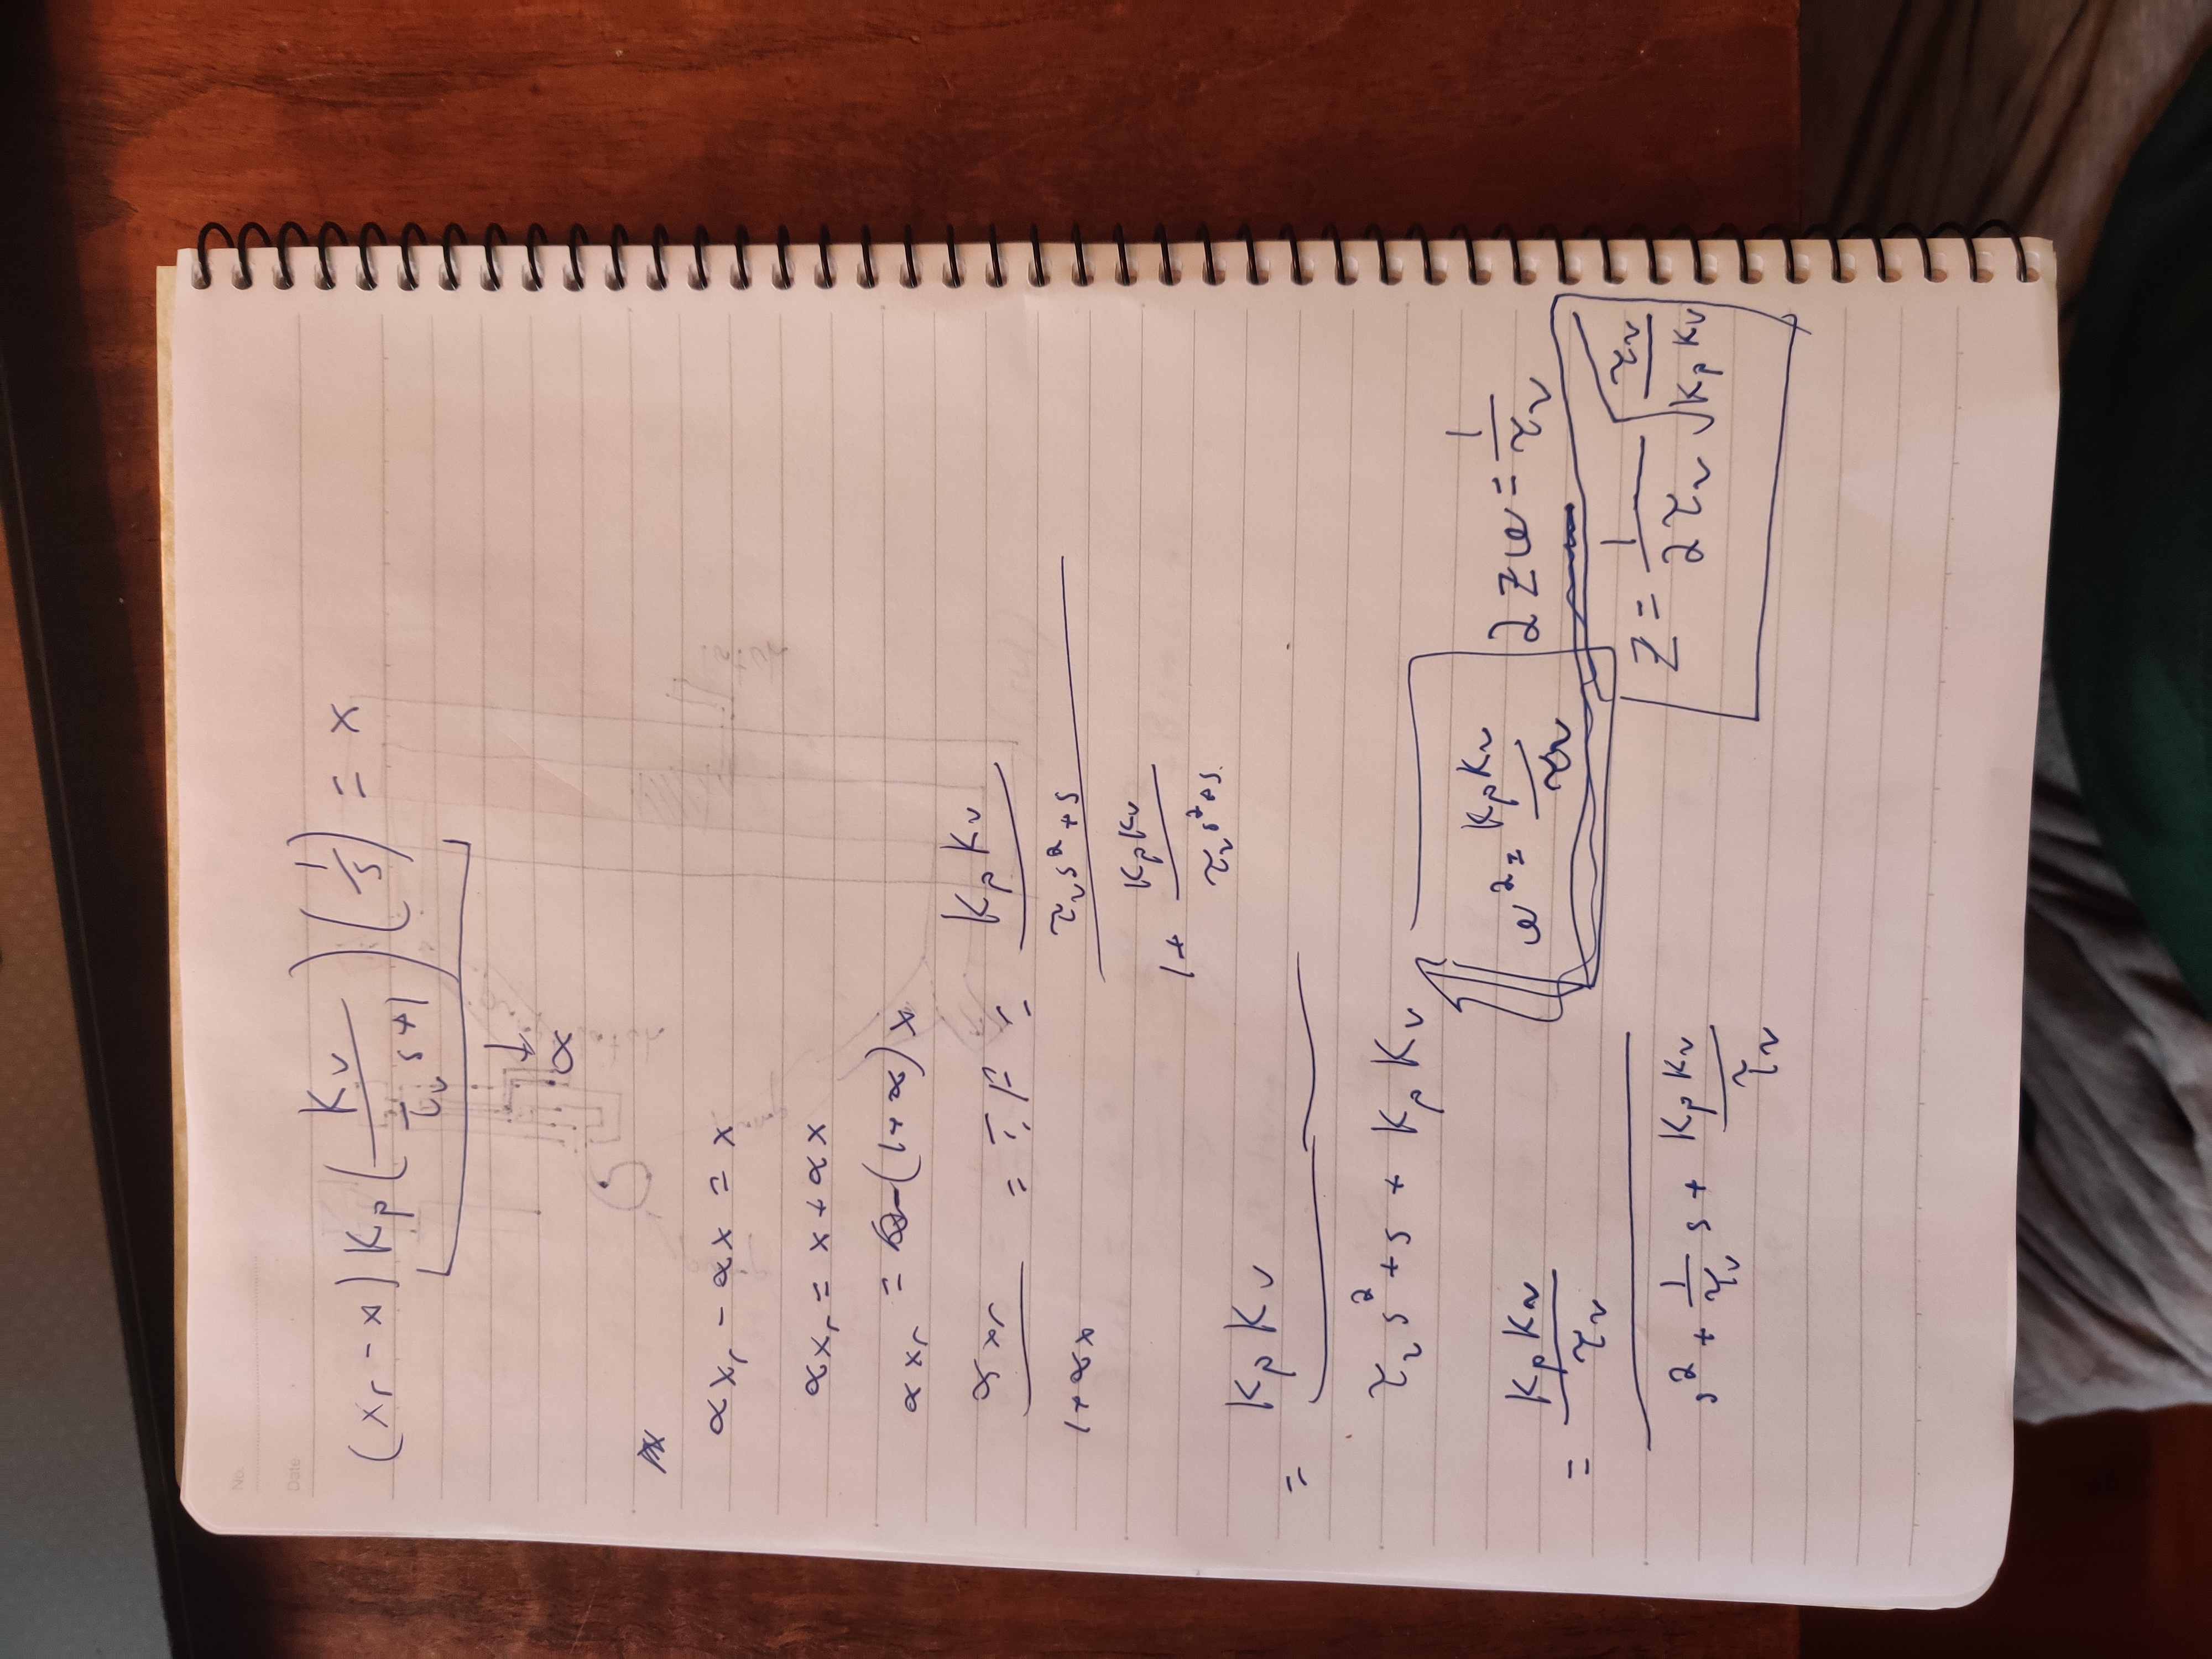 No.
Date
(xᵣ - x) Kp (Kv / (τv s+1)) (1/s) = x
↓
α
αxᵣ - αx = x
αxᵣ = x + αx
αxᵣ = (1+α)x
αxᵣ / 1+αx = T.F = (KpKv / τv s² + s) / (1 + KpKv / τv s² + s)
= KpKv / τv s² + s + KpKv
= (KpKv / τv) / (s² + 1/τv s + KpKv / τv)
ω² = KpKv / τv
2zω = 1/τv
z = 1/2τv √(τv / KpKv)